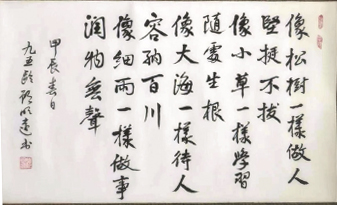 像松樹一樣做人
堅挺不拔
像小草一樣學習
隨處生根
像大海一樣待人
容納百川
像細雨一樣做事
潤物無聲
甲辰春日
九五齡顧明遠书